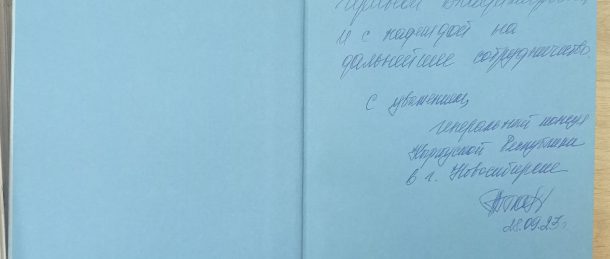 и с надеждой на
дальнейшее сотрудничество.
С уважением,
генеральный консул
Кыргызской Республики
в г. Новосибирске
28.09.23 г.